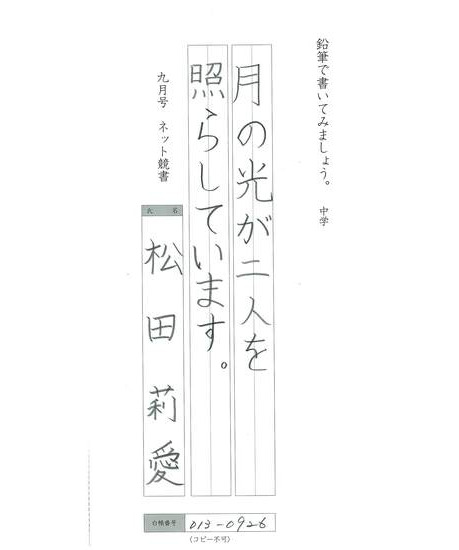 鉛筆で書いてみましょう。 中学
月の光が二人を
照らしています。
九月号 ネット競書
氏 名
松田莉愛
白樺番号 013-0926
(コピー不可)